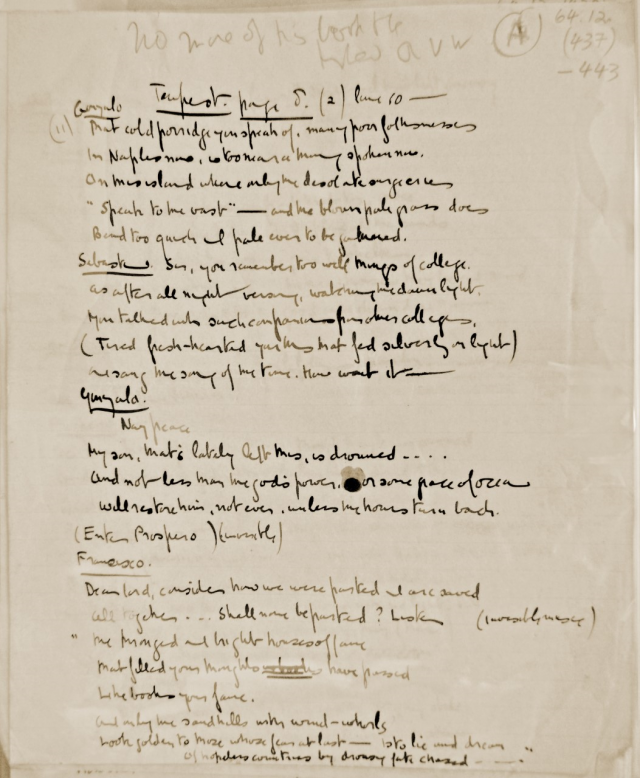 No more of his
64.12.
(A)
(437)
- 443
Tempest. page 8. (2) line 10 —
Gonzalo
(11) That cold porridge you speak of, many poor folks messes
In Naples now, is too near a thing spoken now.
On this island where only the desolate surge cries
"Speak to the vast" — and the blown pale grass does
Bend too quick and pale ever to be gathered.
Sebastian. Sir, you remember too well things of college.
As after all night versing, watching the dawn light.
You talked with such companions from other colleges,
(Tired fresh-hearted youths that fed silverly on light)
and sang the song of the time. How went it —
Gonzalo.
Nay peace
My son, that's lately left this, is drowned ....
And not less than the god's power, or some grace of ocean
will restore him, not ever, unless the hours turn back.
(Enter Prospero) (invisible)
Francisco.
Dear lord, consider how we were parted and are saved
all together ... Shall none be parted? Listen (invisible music)
" The thronged and bright houses of fame
That filled your thoughts have passed
Like books your fame.
And only the sandhills with wind-whorls
Look golden to those whose fear at last — is to lie and dream "
Of countries by drowsy fate chased - - -